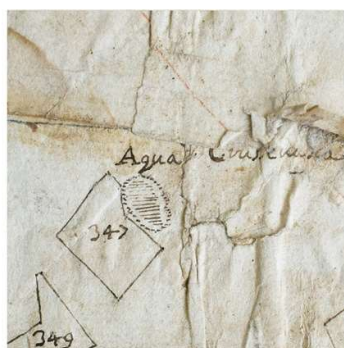 Agua
347
349